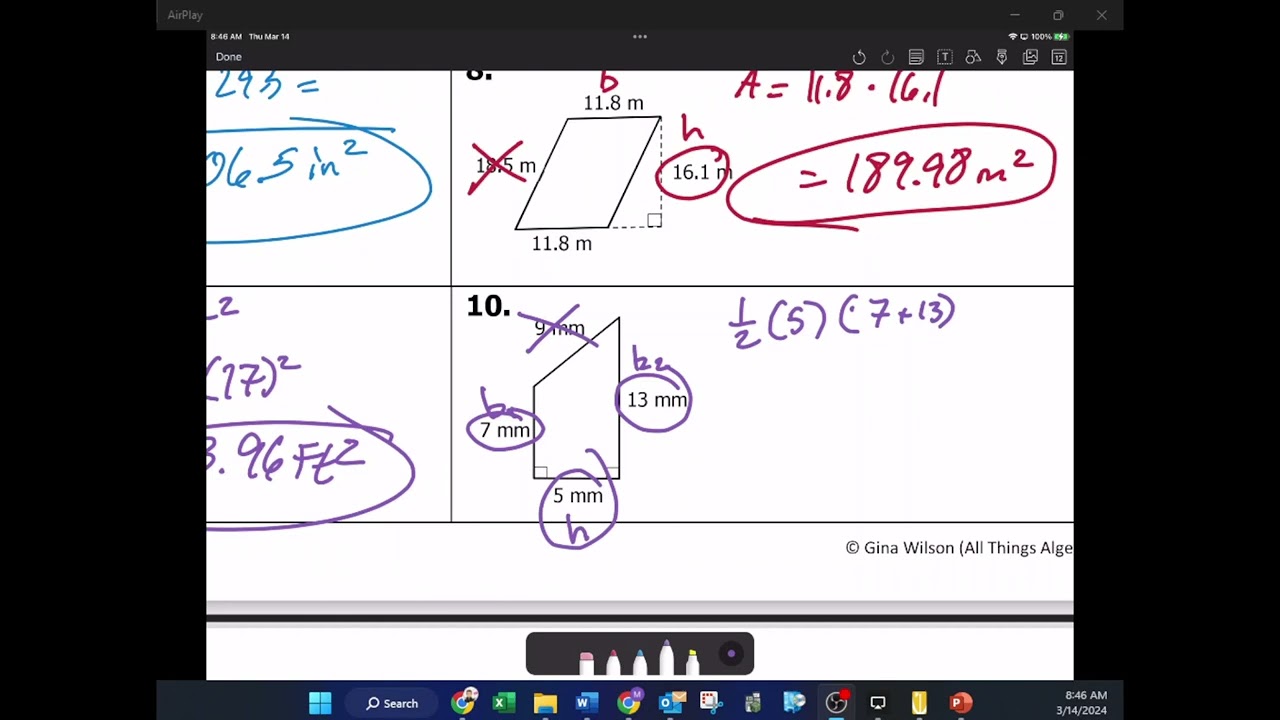 AirPlay
8:46 AM Thu Mar 14
100%
Done
T
12
295 =
06.5 in²
8.
b
11.8 m
18.5 m
h
16.1 m
11.8 m
A = 11.8 · 16.1
= 189.98 m²
(17)²
3.96 Ft²
10.
9 mm
b₂
13 mm
7 mm
5 mm
h
1/2 (5) (7+13)
© Gina Wilson (All Things Alge
Search
8:46 AM
3/14/2024